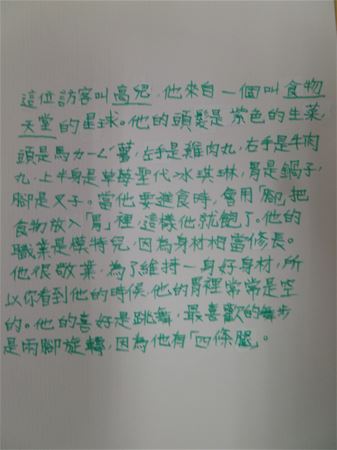 這位訪客叫高兒，他來自一個叫食物
天堂的星球。他的頭髮是紫色的生菜，
頭是馬ㄌㄧㄥˊ薯，左手是雞肉丸，右手是牛肉
丸，上半身是草莓聖代冰琪琳，胃是鍋子，
腳是叉子。當他要進食時，會用「腳」把
食物放入「胃」裡，這樣他就飽了。他的
職業是模特兒，因為身材相當修長。
他很敬業，為了維持一身好身材，所
以你看到他的時候，他的胃裡常常是空
的。他的喜好是跳舞，最喜歡的舞步
是兩腳旋轉，因為他有「四條腿」。